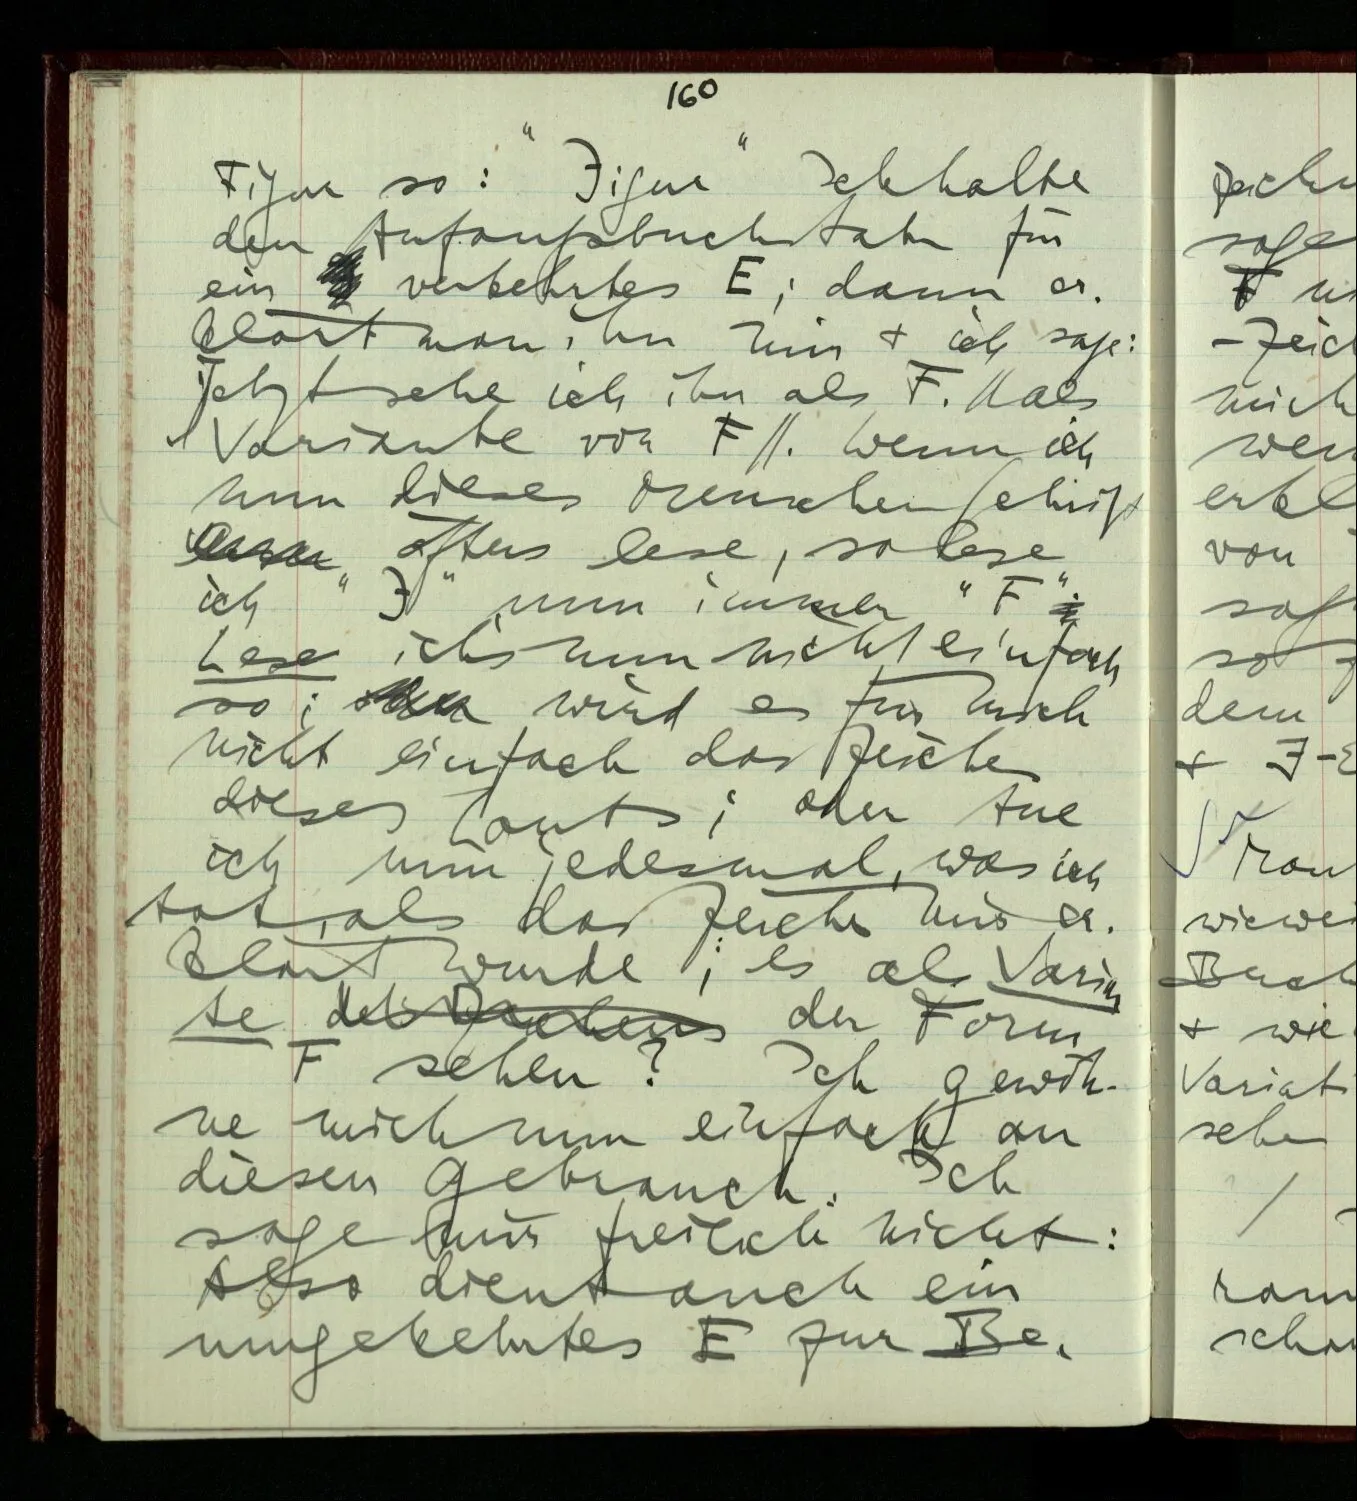 160
Figur so: "Ǝigur" Ich halte
den Anfangsbuchstaben für
ein verkehrtes E; dann er-
klärt man ihn mir + ich sage:
Jetzt sehe ich ihn als F. // als
Variante von F //. Wenn ich
nun dieses Menschen Schrift
öfters lese, so lese
ich "Ǝ" nun immer "F".
Lese ich's nun nicht einfach
so; wird es für mich
nicht einfach das Zeichen
dieses Lauts; oder tue
ich nun jedesmal, was ich
tat, als das Zeichen mir er-
klärt wurde; es als Varian
te des Zeichens der Form
F sehen? Ich gewöh-
ne mich nun einfach an
diesen Gebrauch. Ich
sage mir freilich nicht:
Also dient auch ein
umgekehrtes E zur Be-
F
von
dem
Man
+ wie
sehen